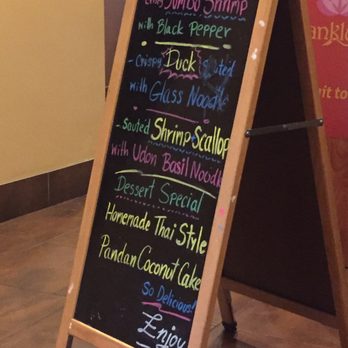 Jumbo Shrimp
with Black Pepper
- Crispy Duck Sauted
with Glass Noodle
- Sauted Shrimp & Scallop
with Udon Basil Noodle
Dessert Special
Homemade Thai Style
Pandan Coconut Cake
So Delicious!
Enjoy